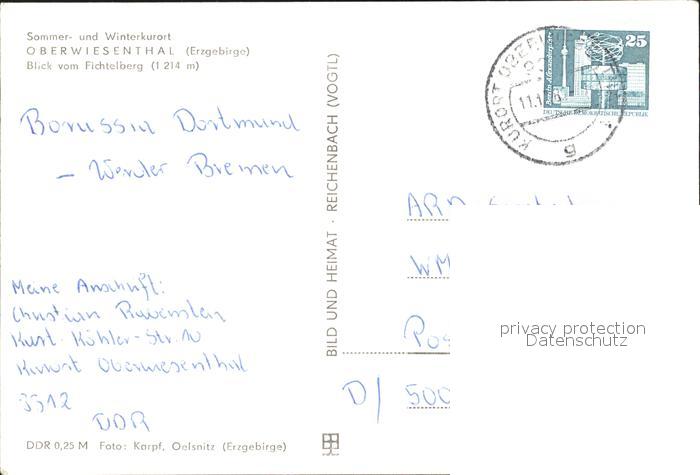 Sommer- und Winterkurort
OBERWIESENTHAL (Erzgebirge)
Blick vom Fichtelberg (1 214 m)
Borussia Dortmund
– Werder Bremen
Meine Anschrift:
Christian
Kurt-Köhler-Str. 10
Kurort Oberwiesenthal
DDR
DDR 0,25 M Foto: Karpf, Oelsnitz (Erzgebirge)
BILD UND HEIMAT · REICHENBACH (VOGTL)
KURORT
25
Berlin, Alexanderplatz
DEUTSCHE DEMOKRATISCHE REPUBLIK
WM
Pos
D/ 500
privacy protection
Datenschutz